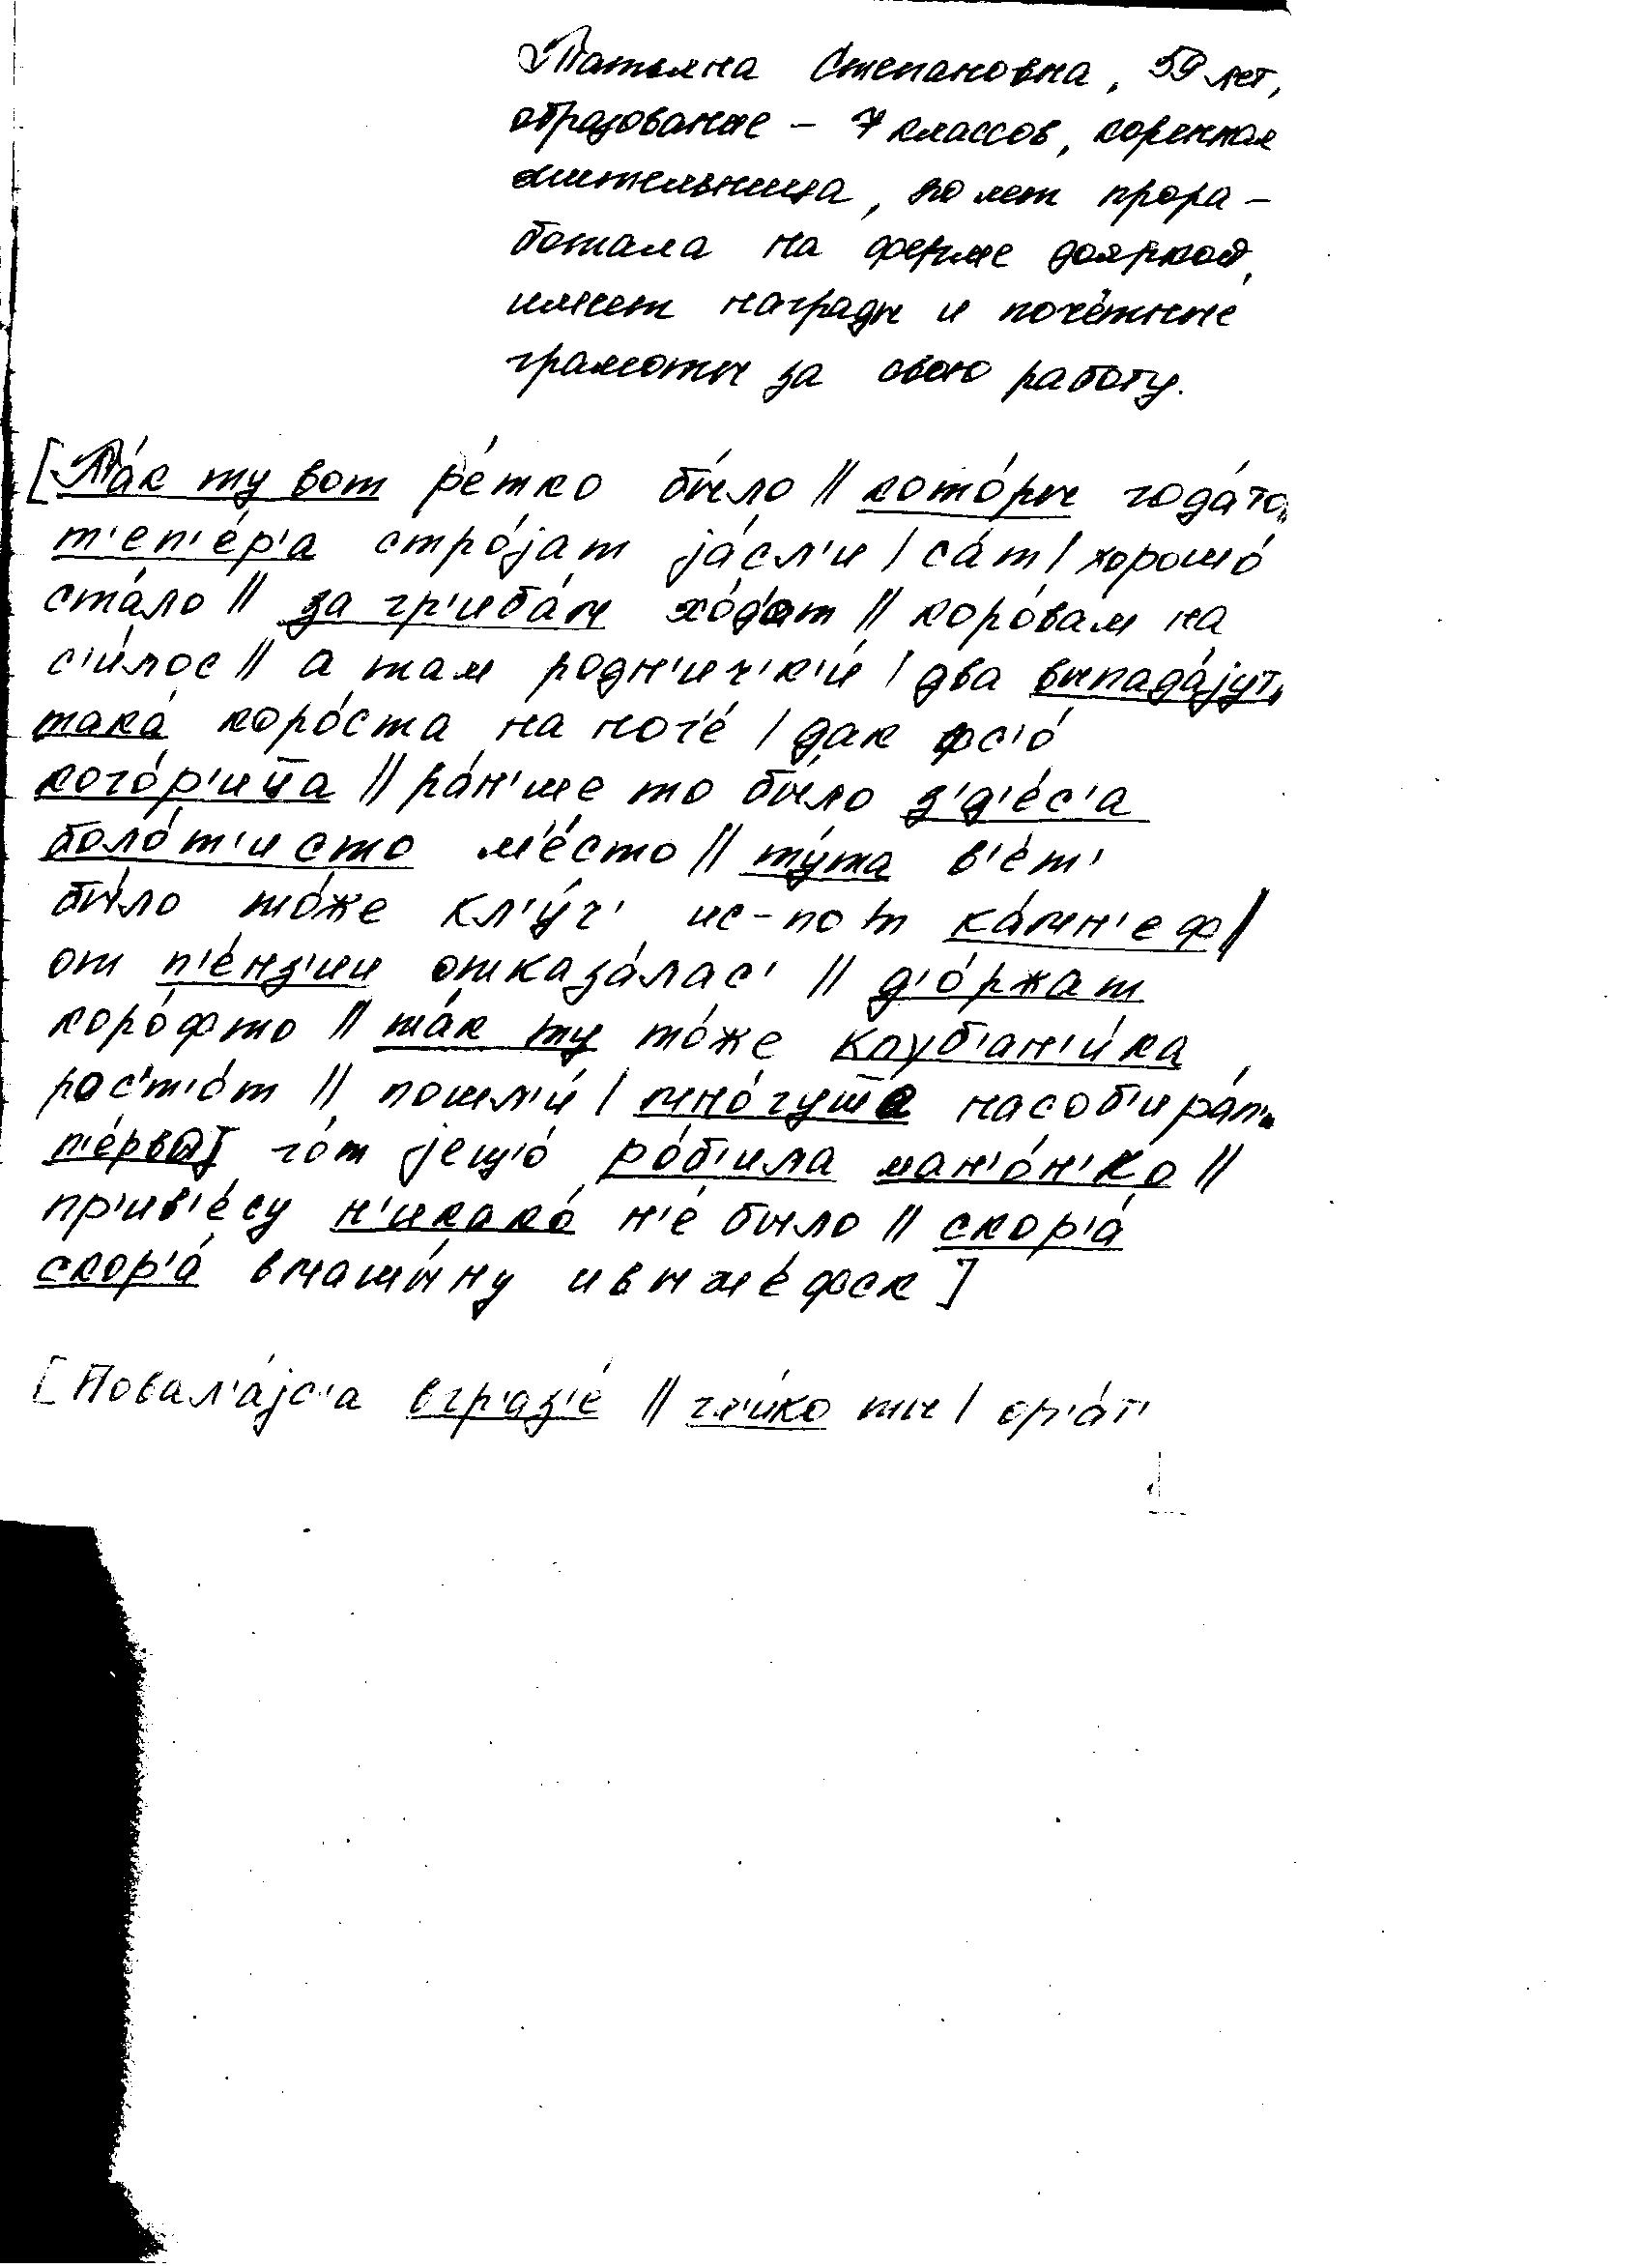 Татьяна Степановна, 59 лет,
образование – 7 классов, коренная
жительница, 20 лет прора-
ботала на ферме дояркой,
имеет награды и почётные
грамоты за свою работу.
[Та́к ту вот ре́тко бы́ло || кото́ры года́то||
т'еп'е́р'а стро́јат ја́сл'и | са́т | хорошо́
ста́ло || за гр'иба́м хо́д'ат || коро́вам на
с'и́лос || а там родн'ич'к'и́ | два выпада́јут||
така́ коро́ста на ног'е́ | дак фс'о́
|| ра́н'ше то бы́ло з'д'е́с'а
боло́т'исто м'е́сто || ту́та в'е́т'
бы́ло то́же кл'у́ч' ис-пот ка́мн'еф ||
от п'е́нз'ии отказа́лас' || д'о́ржат
коро́фто || та́к ту то́же клуб'ан'и́ка
рас'т'о́т || пошл'и́ | насоб'ира́л'и||
п'е́рвој го́т јещ'о́ ро́б'ила ман'о́н'ко ||
пр'ив'е́су н'икако́ н'е́ было || скор'а́
скор'а́ вмашы́ну ивыже́фск]
[Повал'а́јс'а вгр'аз'е́ || гл'и́ко ты | ор'а́т'